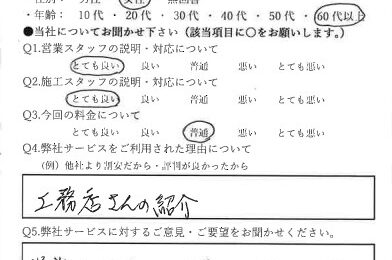 ・年齢： 10代 ・ 20代 ・ 30代 ・ 40代 ・ 50代 ・ 60代以上
●当社についてお聞かせ下さい（該当項目に〇をお願いします。）
Q1.営業スタッフの説明・対応について
とても良い 良い 普通 悪い とても悪い
Q2.施工スタッフの説明・対応について
とても良い 良い 普通 悪い とても悪い
Q3.今回の料金について
とても良い 良い 普通 悪い とても悪い
Q4.弊社サービスをご利用された理由について
（例）他社より割安だから・評判が良かったから
工務店さんの紹介
Q5.弊社サービスに対するご意見・ご要望をお聞かせください。